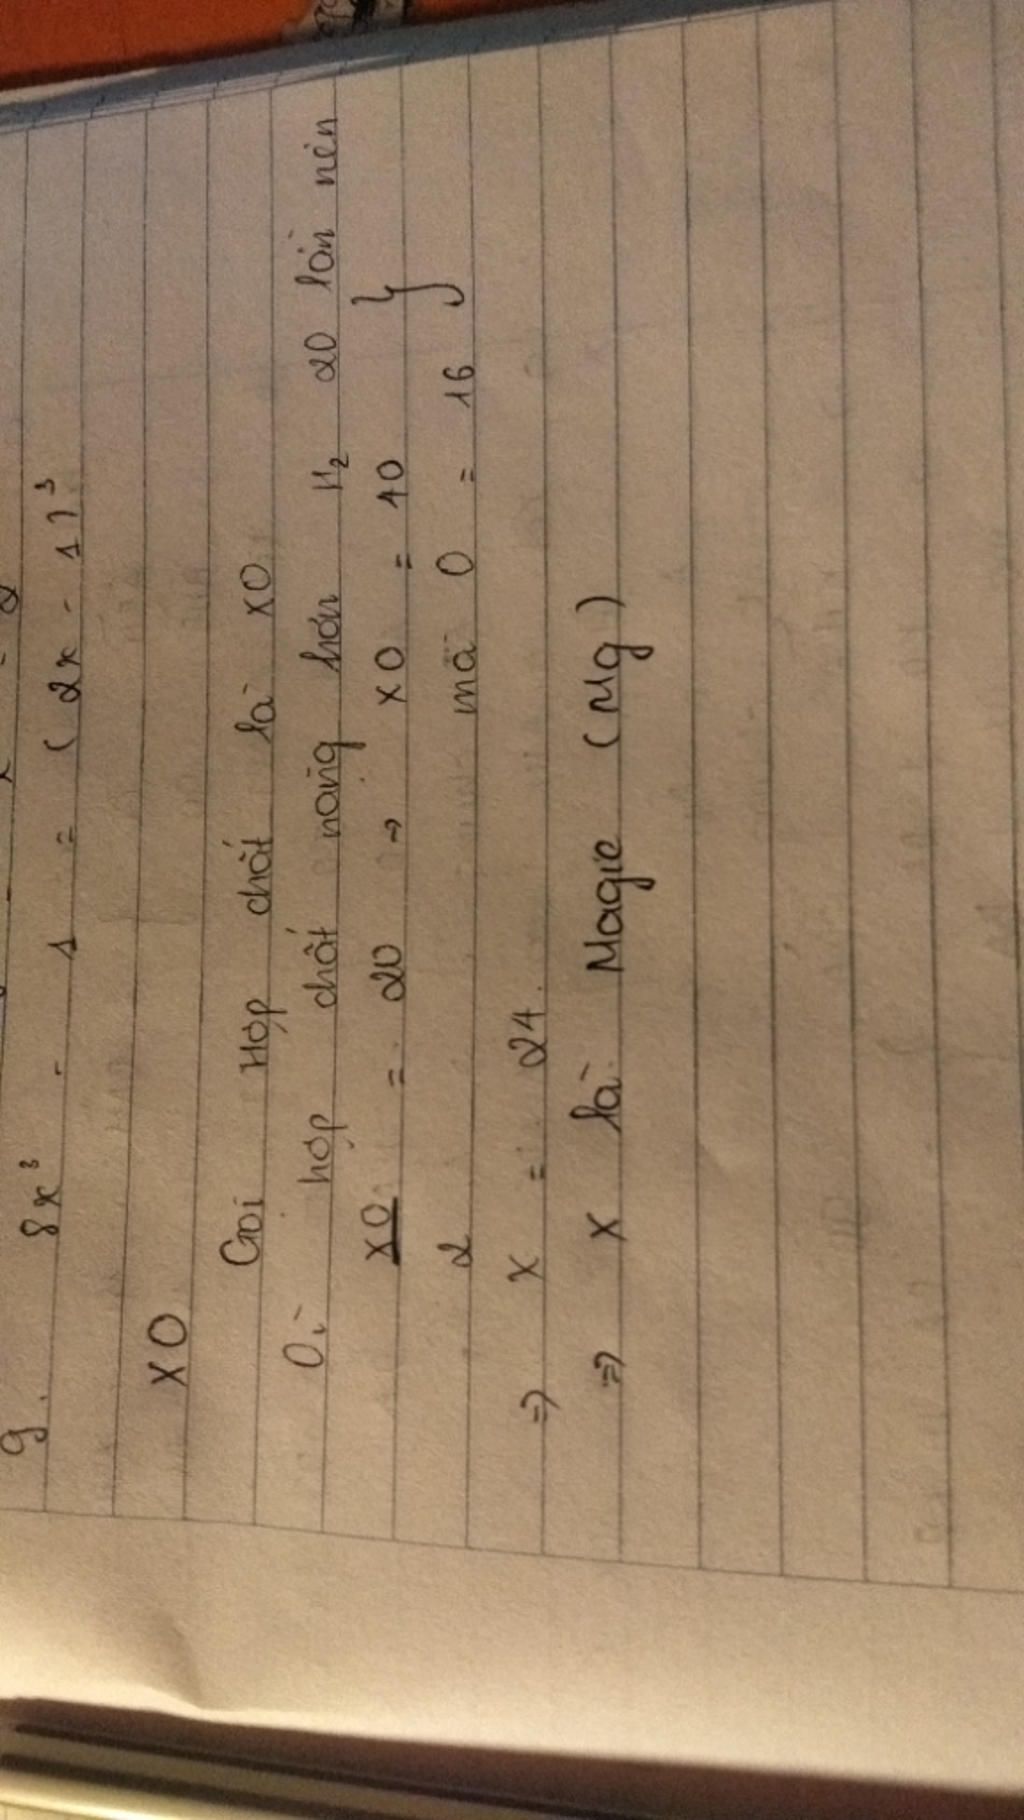 g. 8x³ - 1 = (2x - 1)³
XO
Gọi Hợp chất là XO
Vì hợp chất nặng hơn H₂ 20 lần nên
XO = 20 → XO = 40 }
2 mà O = 16
⇒ X = 24.
⇒ X là Magie (Mg)